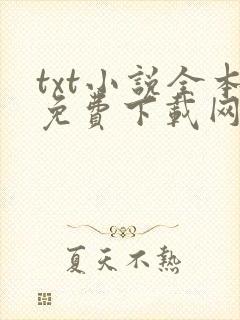 txt小說全本
免費下載网
夏天不熱